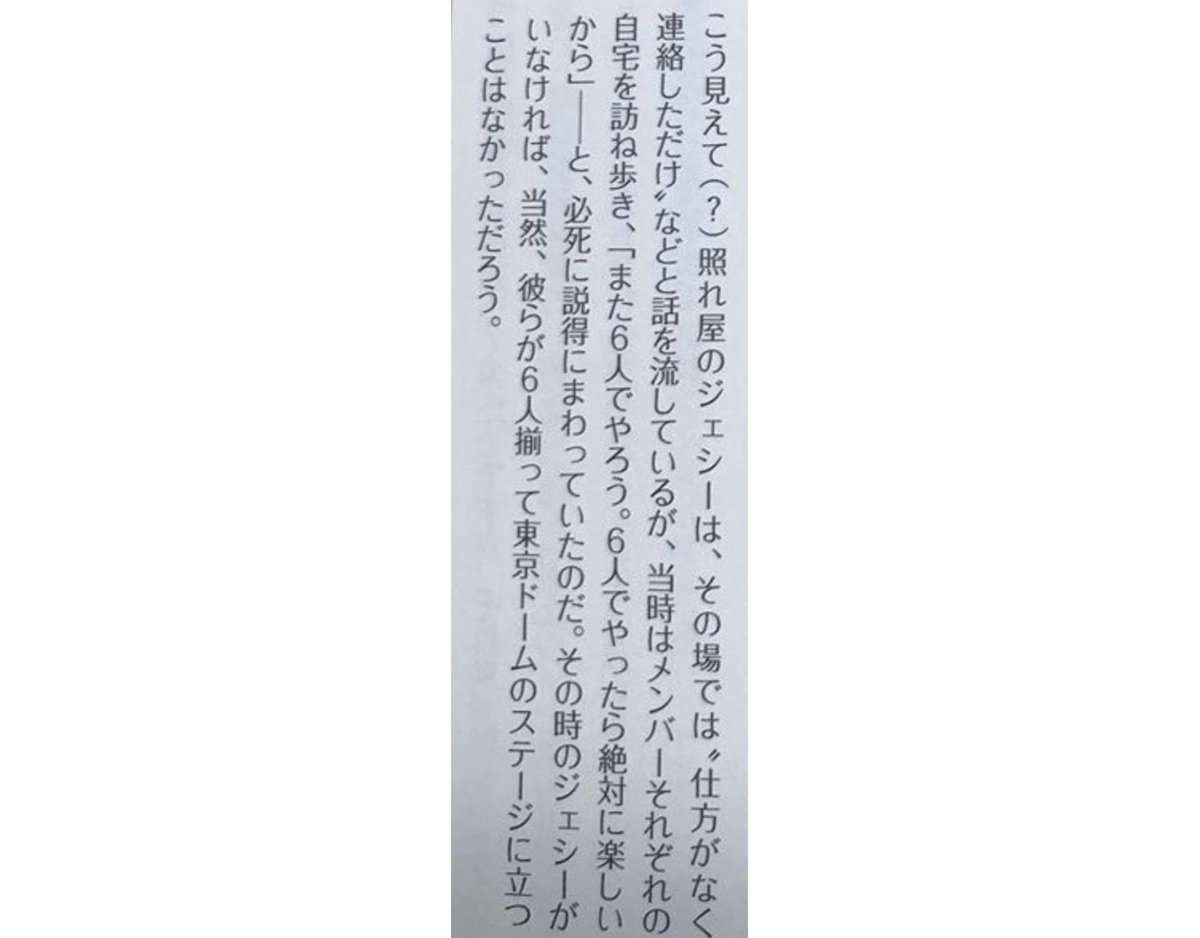 こう見えて（？）照れ屋のジェシーは、その場では〝仕方がなく
連絡しただけ〟などと話を流しているが、当時はメンバーそれぞれの
自宅を訪ね歩き、「また6人でやろう。6人でやったら絶対に楽しい
から」――と、必死に説得にまわっていたのだ。その時のジェシーが
いなければ、当然、彼らが6人揃って東京ドームのステージに立つ
ことはなかっただろう。